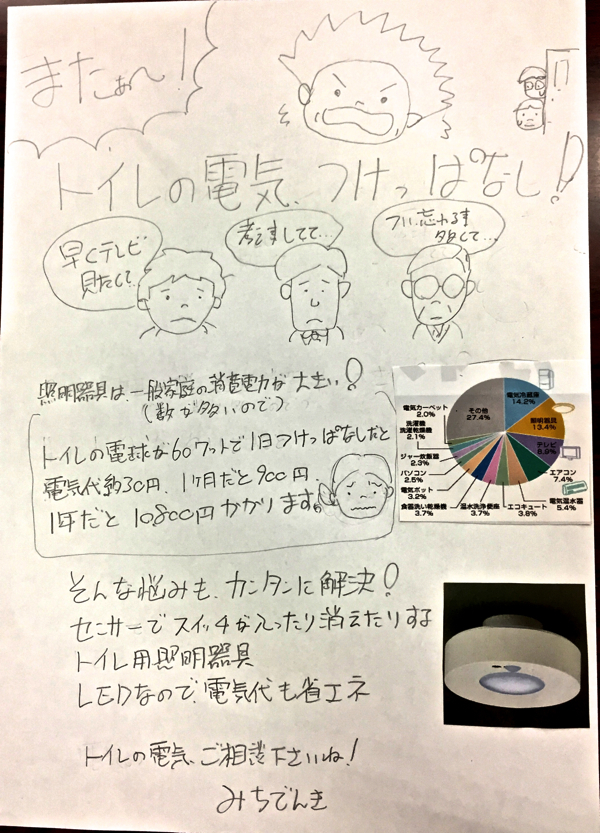 またぁ〜!
トイレの電気、つけっぱなし!
早くテレビ
見たくて…
考え事してて…
つい忘れる事
多くて…
照明器具は、一般家庭の消費電力が大きい!
(数が多いので)
トイレの電球が60ワットで1日つけっぱなしだと
電気代約30円、1ヶ月だと900円
1年だと10800円かかります。
電気冷蔵庫
14.2%
照明器具
13.4%
テレビ
8.9%
エアコン
7.4%
電気温水器
5.4%
エコキュート
3.8%
温水洗浄便座
3.7%
食器洗い乾燥機
3.7%
電気ポット
3.2%
パソコン
2.5%
ジャー炊飯器
2.3%
洗濯機
洗濯乾燥機
2.1%
電気カーペット
2.0%
その他
27.4%
そんな悩みも、カンタンに解決!
センサーでスイッチが入ったり消えたりする
トイレ用照明器具
LEDなので、電気代も省エネ
トイレの電気、ご相談下さいね!
みちでんき